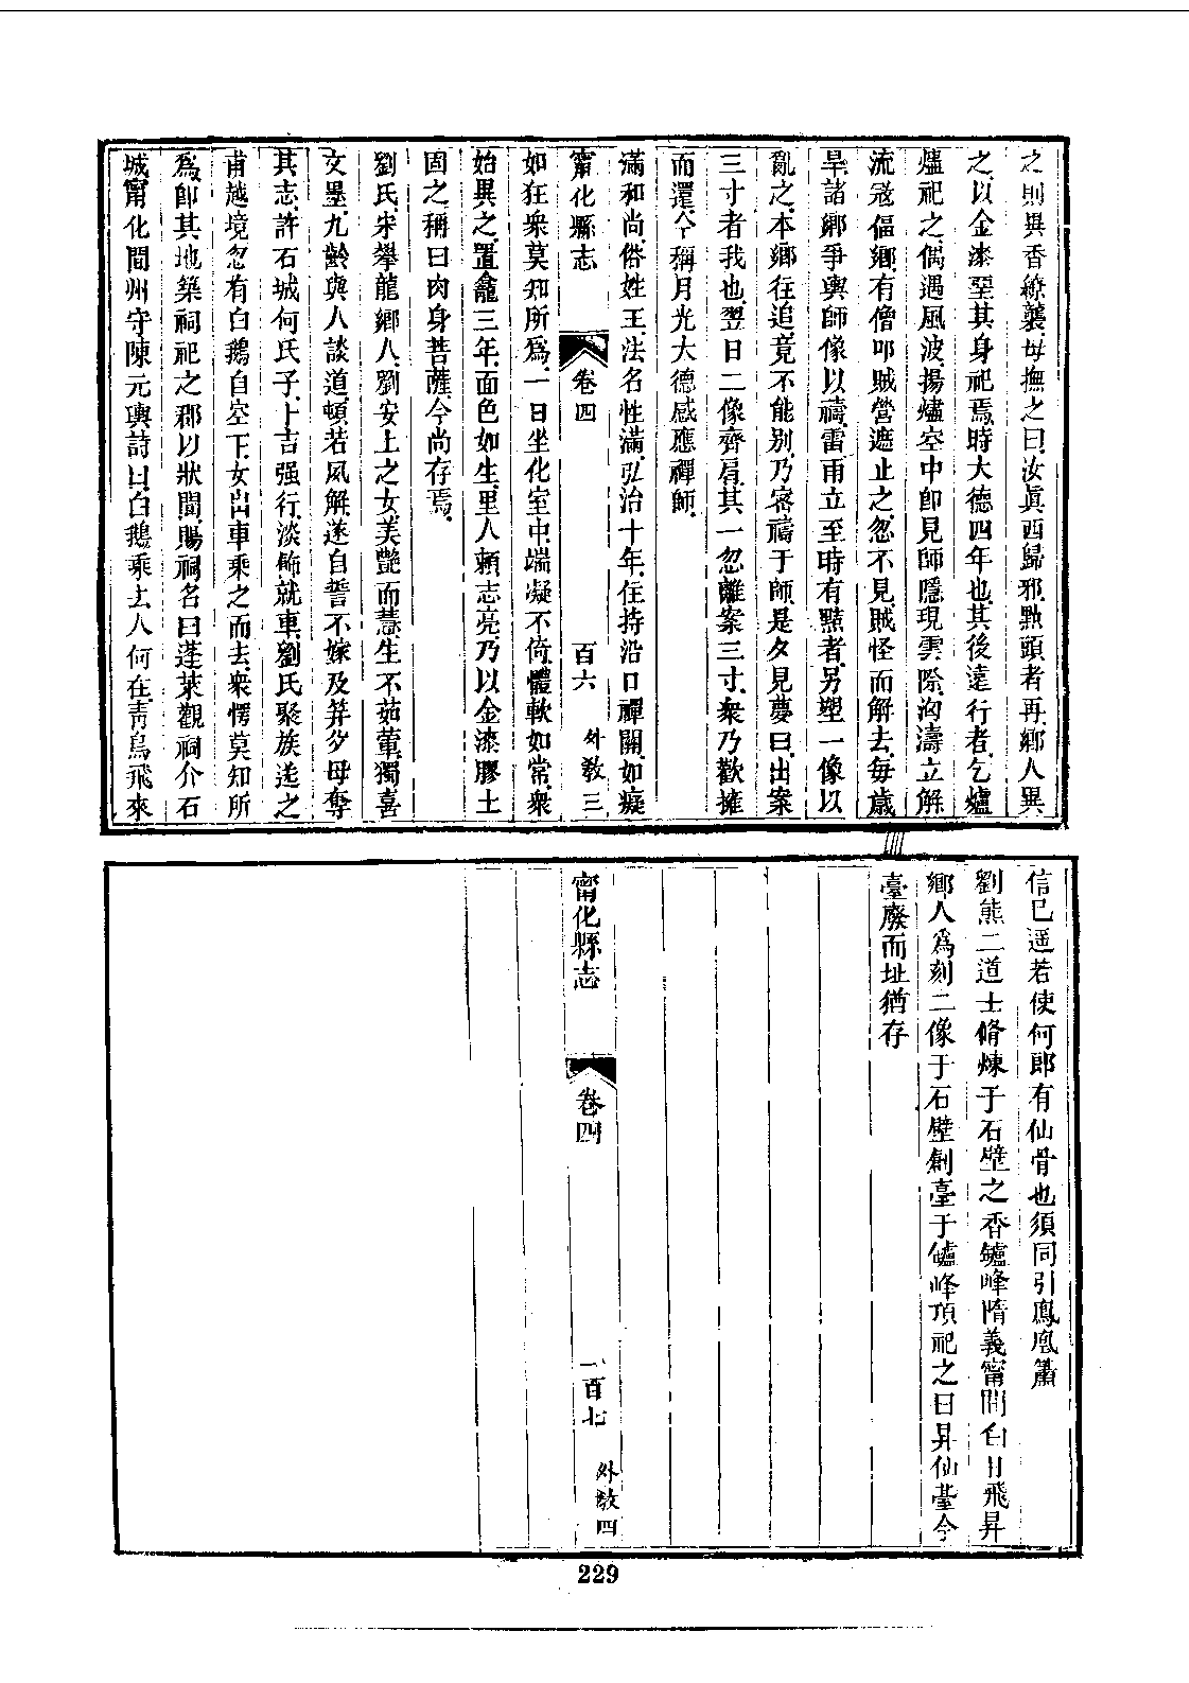 之則異香繚襲母撫之曰汝眞西歸邪點頭者再鄉人異
之以金漆堊其身祀焉時大德四年也其後遠行者乞爐
燼祀之偶遇風波揚燼空中卽見師隱現雲際洶濤立解
流寇偪鄉有僧叩賊營遮止之忽不見賊怪而解去每歲
旱諸鄉爭輿師像以禱雷雨立至時有黠者另塑一像以
亂之本鄉往追竟不能別乃密禱于師是夕見夢曰出案
三寸者我也翌日二像齊肩其一忽離案三寸衆乃歡擁
而還今稱月光大德感應禪師
滿和尚俗姓王法名性滿弘治十年住持沿口禪關如癡
甯化縣志 卷四 百六 外教三
如狂衆莫知所爲一日坐化室中端凝不倚體軟如常衆
始異之置龕三年面色如生里人賴志亮乃以金漆膠土
固之稱曰肉身菩薩今尚存焉
劉氏宋攀龍鄉人劉安上之女美艷而慧生不茹葷獨喜
文墨九齡與人談道頓若夙解遂自誓不嫁及笄父母奪
其志許石城何氏子卜吉强行淡飾就車劉氏聚族送之
甫越境忽有白鵝自空下女出車乘之而去衆愕莫知所
爲卽其地築祠祀之郡以狀聞賜祠名曰蓬萊觀祠介石
城甯化間州守陳元輿詩曰白鵝乘去人何在靑鳥飛來
信已遥若使何郎有仙骨也須同引鳳凰簫
劉熊二道士脩煉于石壁之香鑪峰隋義甯間白日飛昇
鄉人爲刻二像于石壁創臺于鑪峰頂祀之曰昇仙臺今
臺廢而址猶存
甯化縣志 卷四 一百七 外教四
229